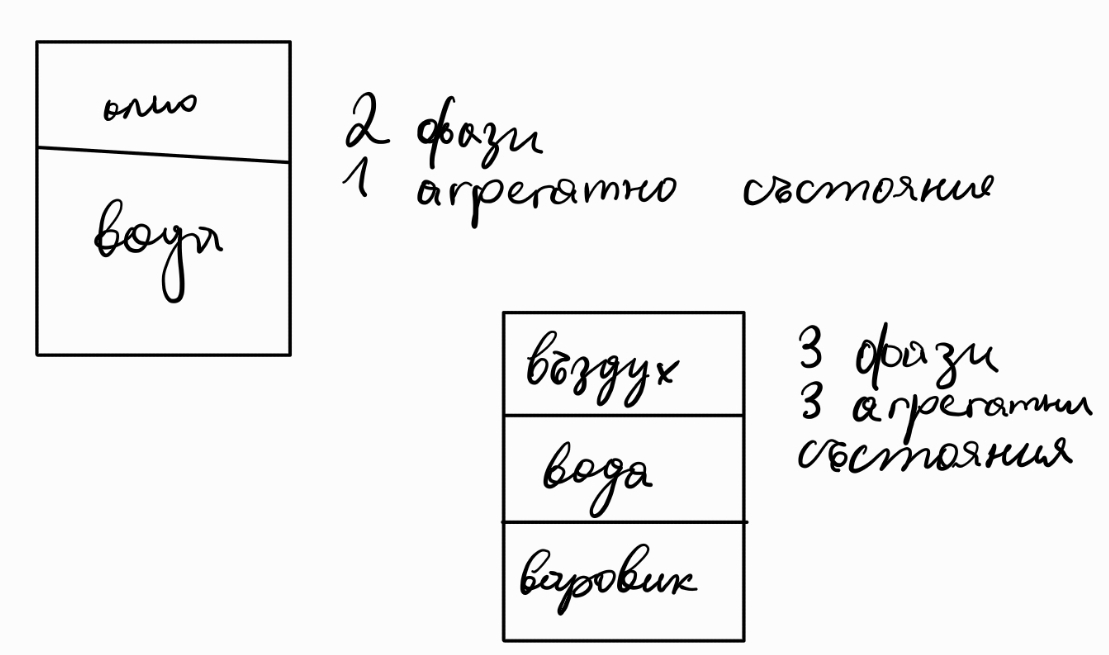 олио
вода
2 фази
1 агрегатно състояние
въздух
вода
варовик
3 фази
3 агрегатни
състояния